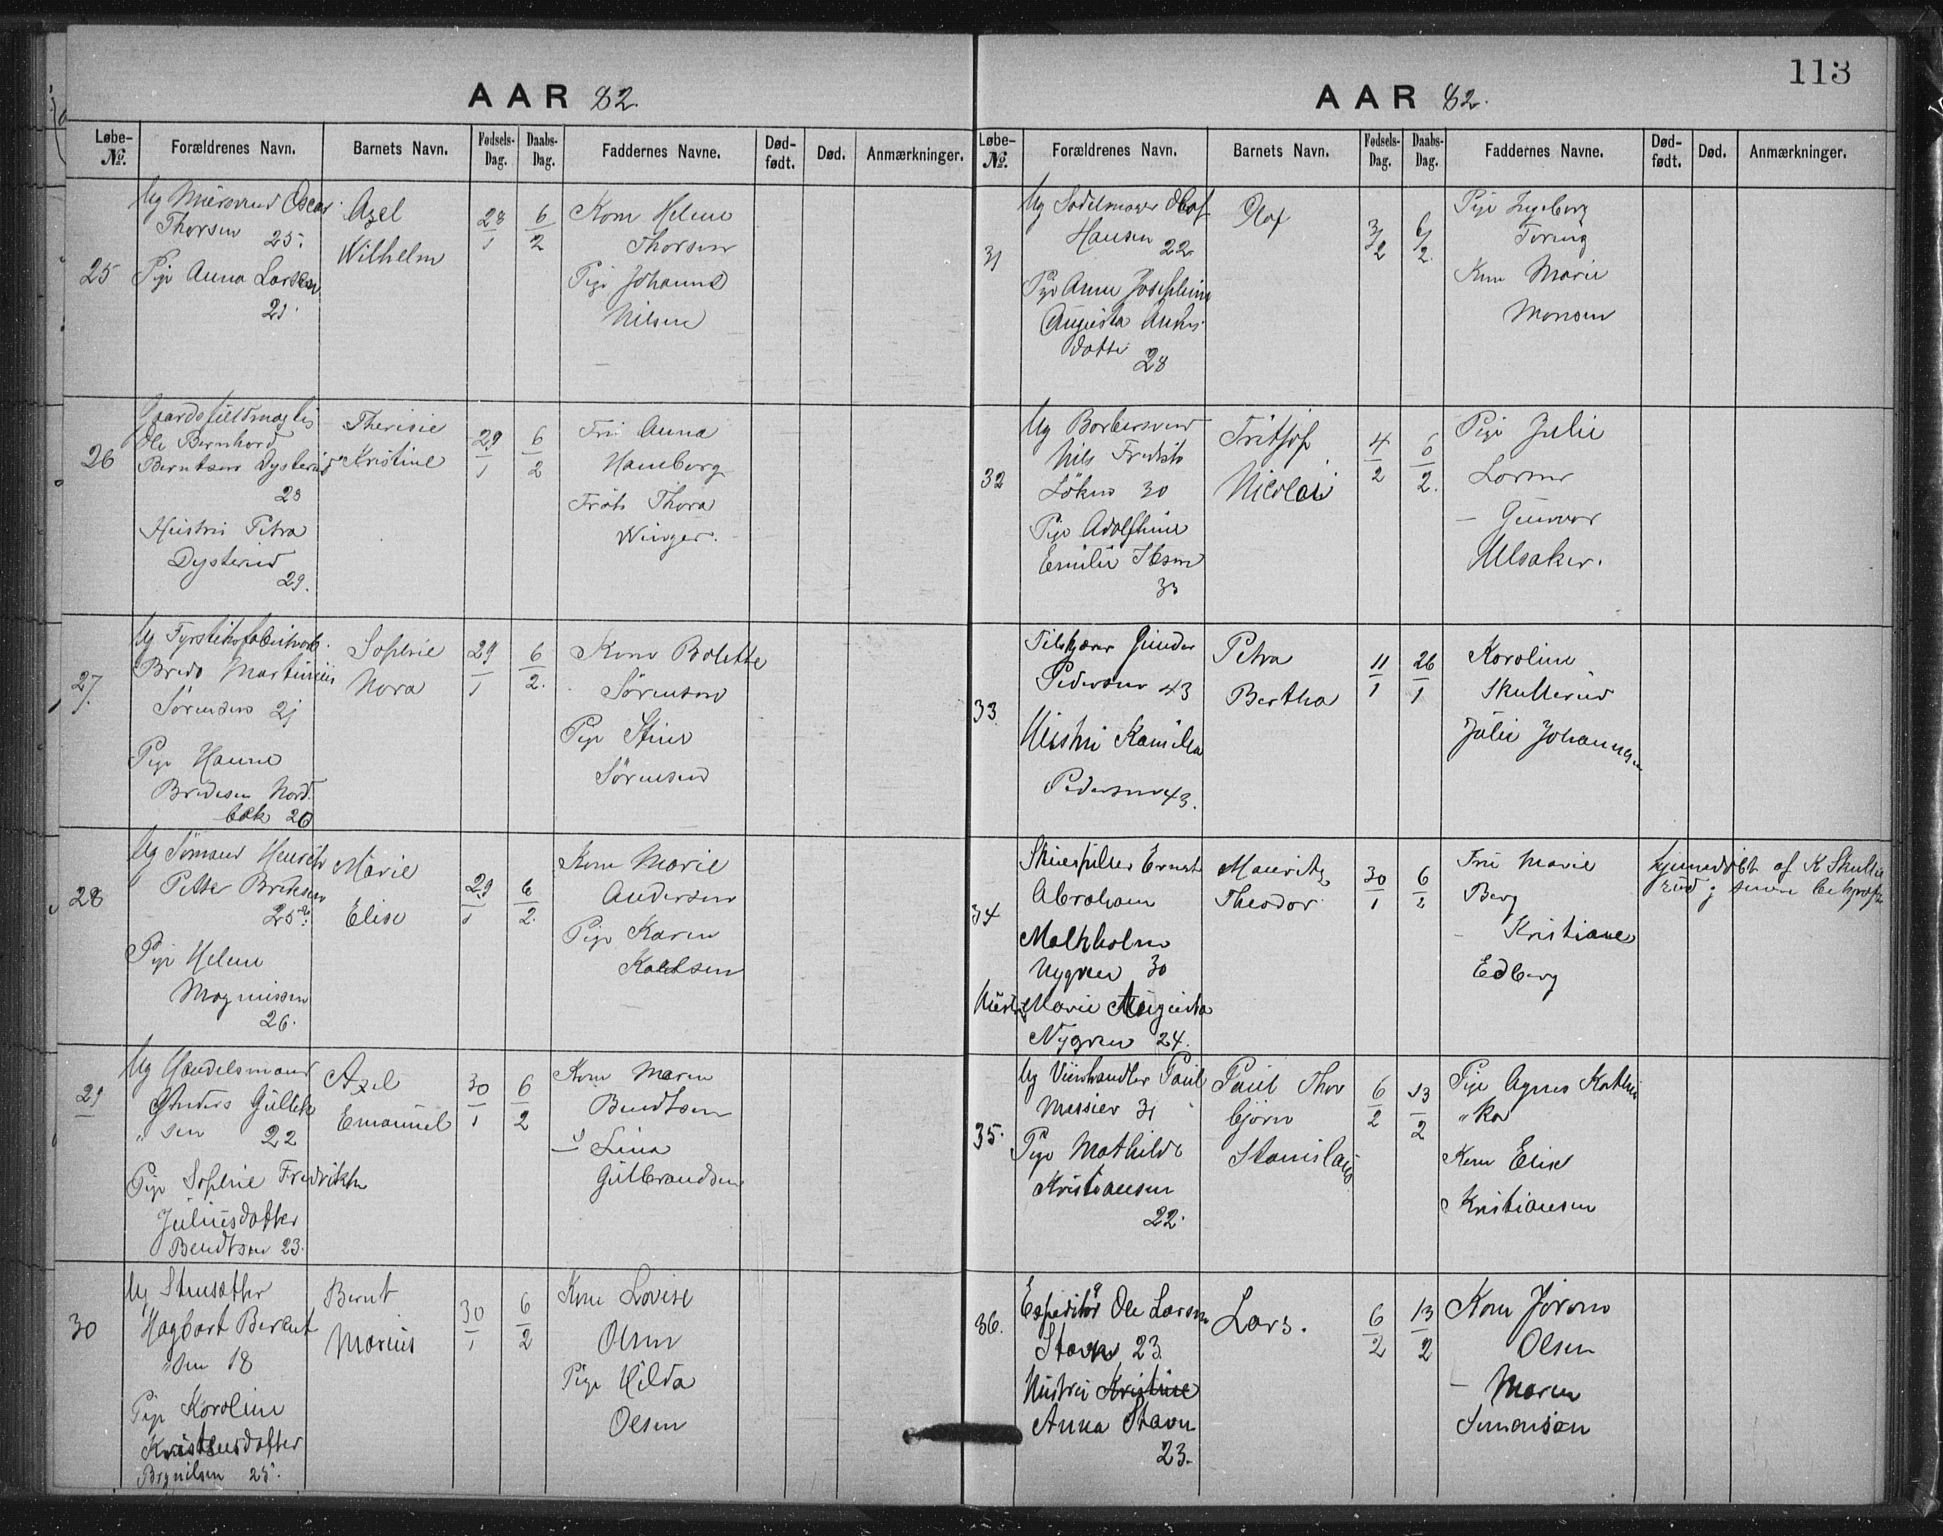 AAR 82.
Løbe-№. Forældrenes Navn. Barnets Navn. Fødsels-Dag. Daabs-Dag. Faddernes Navne. Død-født. Død. Anmærkninger.
25
Ug Oscar
Thorsen 25.
Pige Anna Larsen
21.
Axel
Wilhelm
28/1
6/2
Kone Helene
Thorsen
Pige Johanne
Nilsen
26
Ole Bernhard
Berntsen Dysterud
28
Hustru Petra
Dysterud
29.
Therisie
Kristine
29/1
6/2
Fru Anna
Hamborg
Frøk Thora
Winger.
27.
Ug
Bredo Martinius
Sørensen 21
Pige Hanne
Bredesen Nord
bæk 20
Sophie
Nora
29/1
6/2.
Kone Bolette
Sørensen
Pige Stine
Sørensen
28
Ug Sømand Henrik
Petter Bredesen
25
Pige Helene
Magnussen
26.
Marie
Elise
29/1
6/2.
Kone Marie
Andersen
Pige Karen
Karlsen
29
Ug Handelsmand
Anders Gullik
" sen 22
Pige Sophie Fredrikke
Juliusdatter
Bendtsen 23.
Axel
Emanuel
30/1
6/2
Kone Maren
Bendtsen
— Lina
Gulbrandsen
30
Ug Stensætter
Hagbart Bernt
"sen 18
Pige Karoline
Kristensdatter
Brynilsen 25.
Bernt
Marius
30/1
6/2
Kone Lovise
Olsen
Pige Hilda
Olsen
113
AAR 82.
Løbe-№. Forældrenes Navn. Barnets Navn. Fødsels-Dag. Daabs-Dag. Faddernes Navne. Død-født. Død. Anmærkninger.
31
Ug Sadelmager Olaf
Hansen 22
Pige Anne Josephine
Augusta Anders
datter
28
Olaf
3/2
6/2.
Pige Ingeborg
Kone Marie
Monsen
32
Ug Barbersvend
Nils Fredrik
Løken 30
Pige Adolphine
Emilie
33
Fritjof
Nicolai
4/2
6/2.
Pige Julie
Larsen
— Gunvor
Ulsaker.
33
Gunder
Pedersen 43
Hustru Kamilla
Pedersen 43.
Petra
Bertha
11/1
26/1
Karoline
Skullerud
Julie Johannesen
34
Skuespiller Ernst
Abraham
Malkholm
Nygren 30
Hustru Marie Augusta
Nygren 24.
Mauritz
Theodor
30/1
6/2
Fru Marie
Berg
- Kristiane
Edberg
hjemmedøbt af K Skulle
rud
35.
Ug Vinhandler Paul
Messier 31
Pige Mathilde
Kristiansen
22.
Paul Thor
bjørn
Stanislaus
6/2
13/2
Pige Agnes Kathin
"ka
Kone Elise
Kristiansen
36.
Expeditør Ole Larsen
Stavn 23
Hustru Kristine
Anna Stavn
23.
Lars.
6/2
13/2
Kone Joronn
Olsen
— Maren
Simonsen